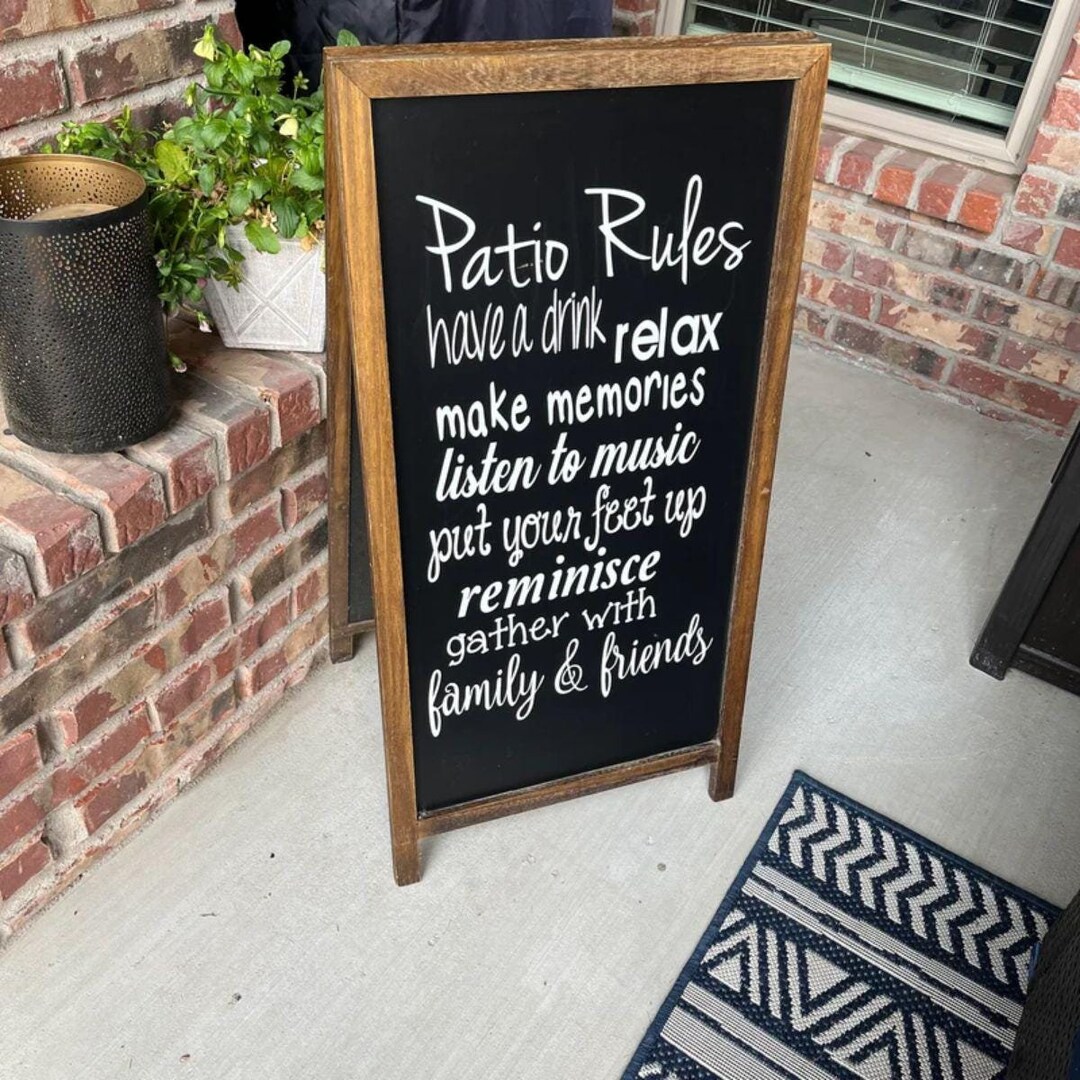 Patio Rules
have a drink relax
make memories
listen to music
put your feet up
reminisce
gather with
family & friends